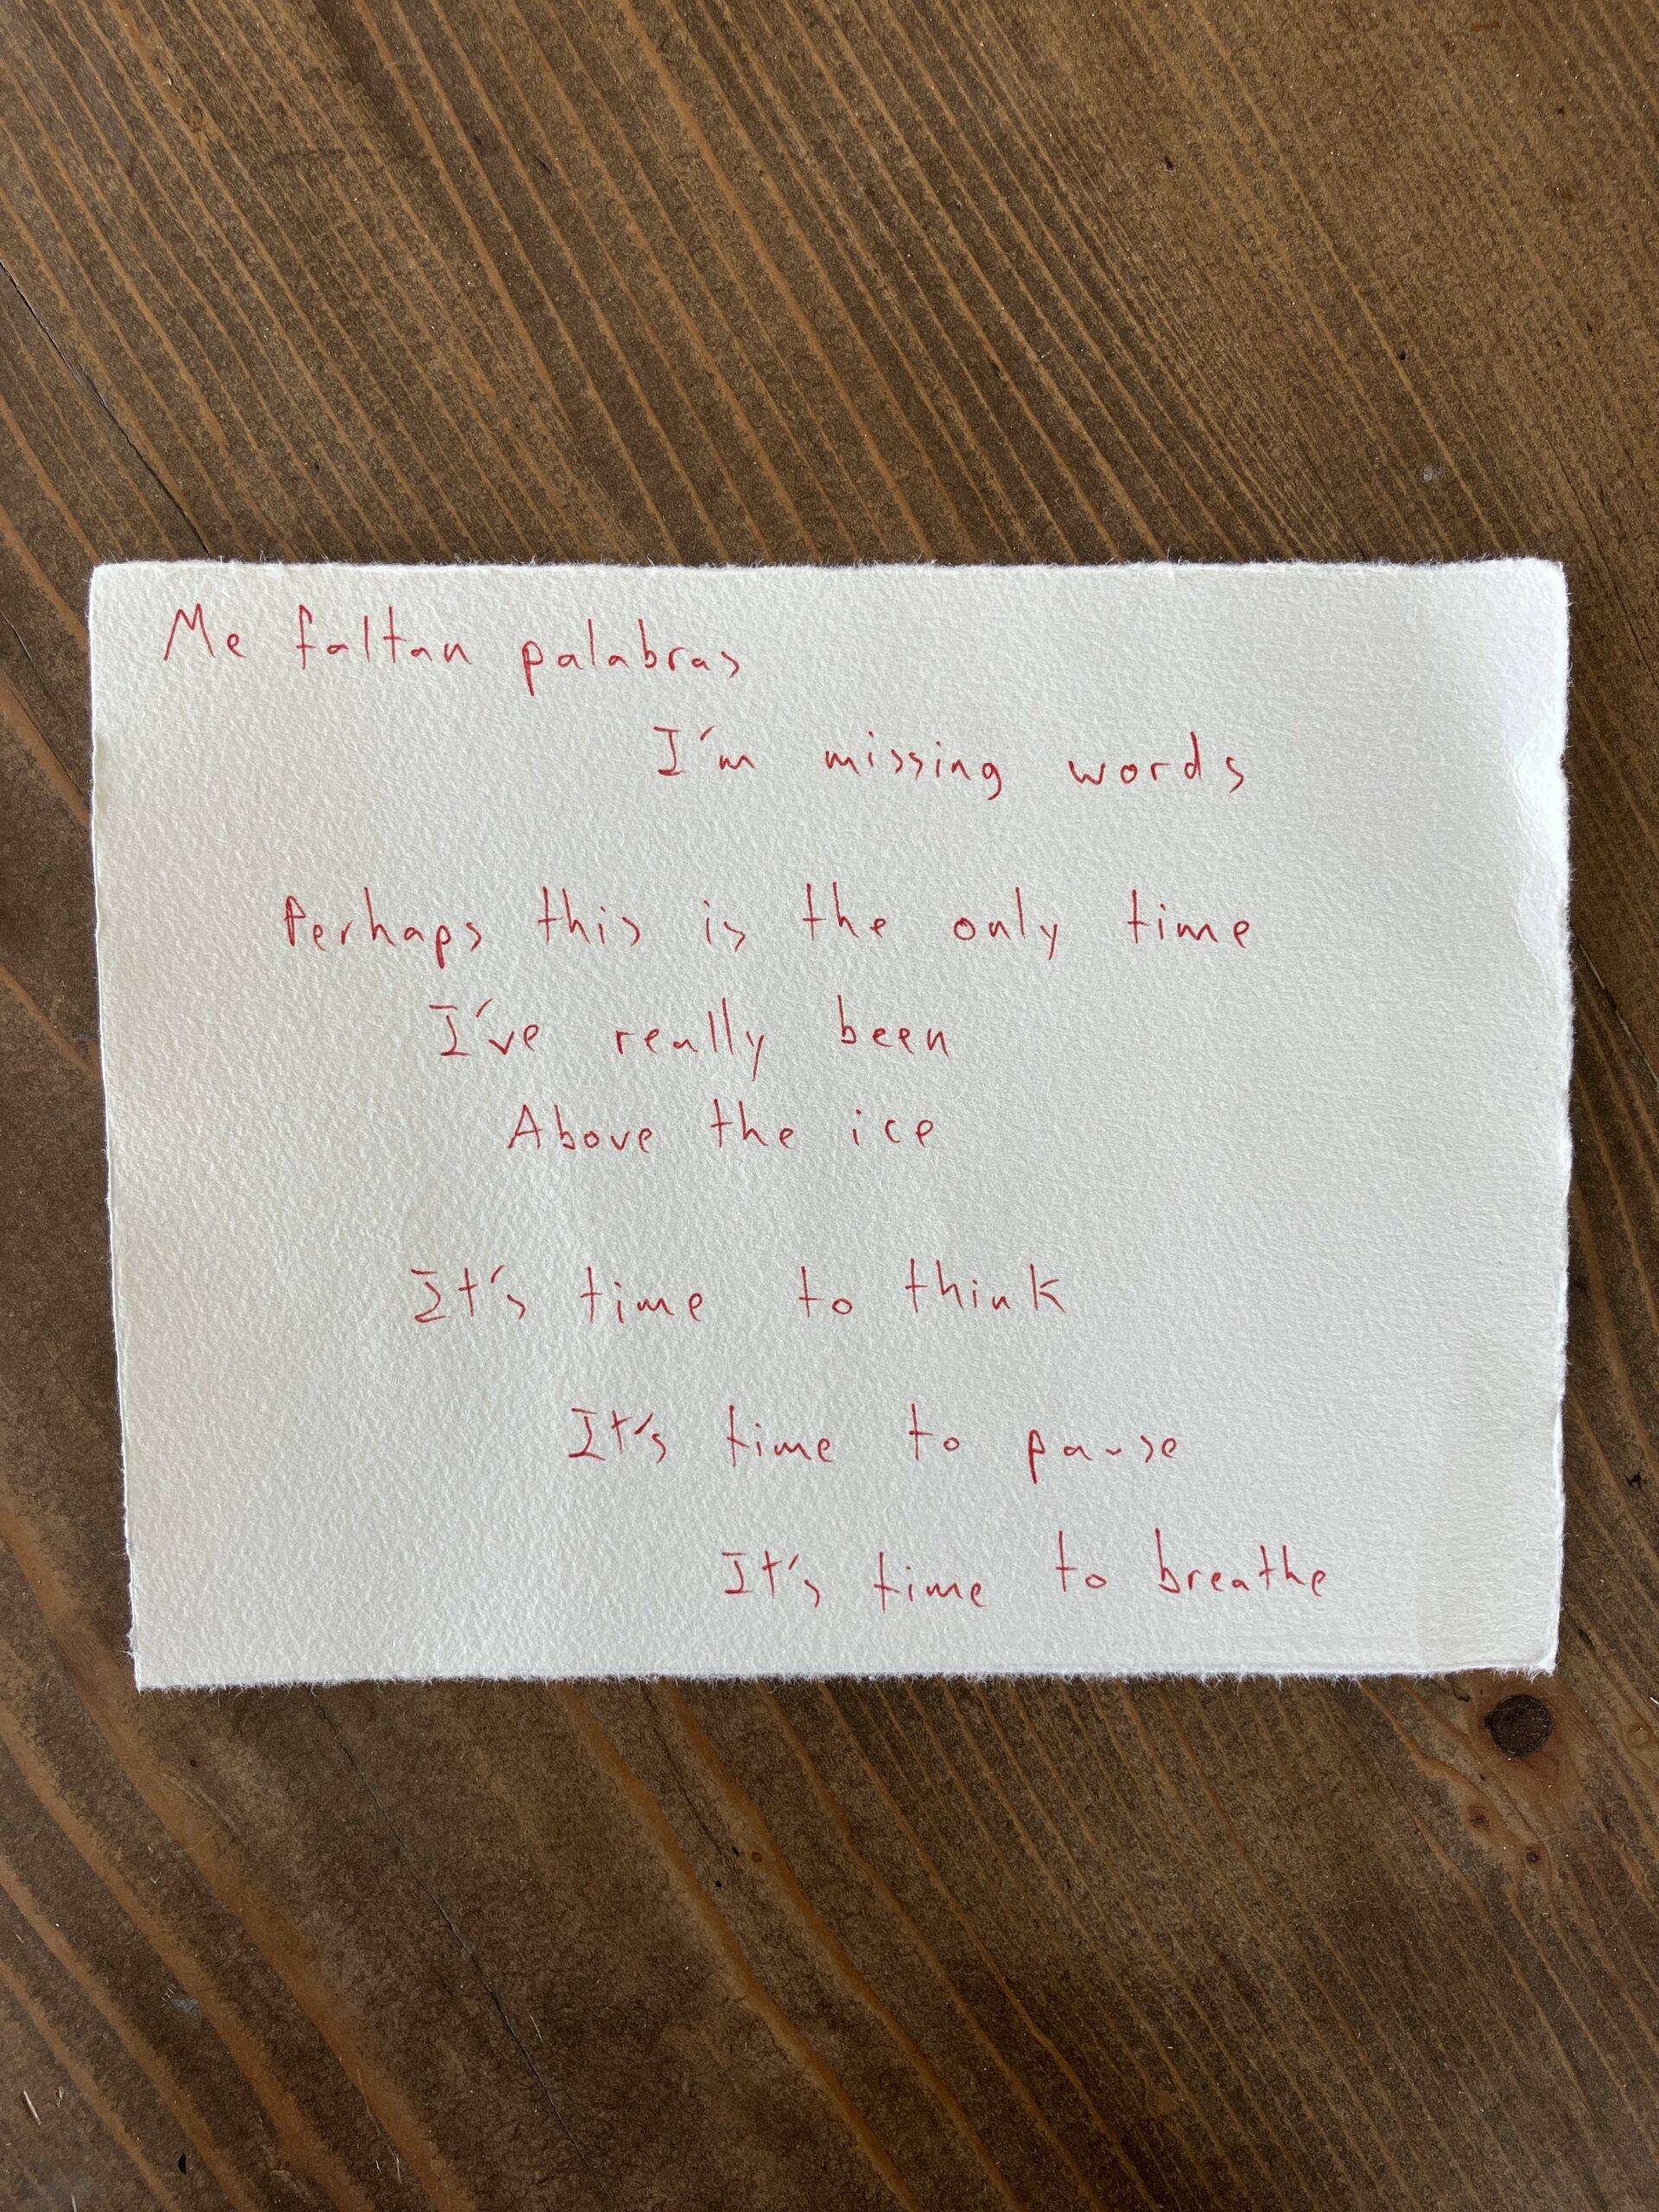 Me faltan palabras
I'm missing words
Perhaps this is the only time
I've really been
Above the ice
It's time to think
It's time to pause
It's time to breathe